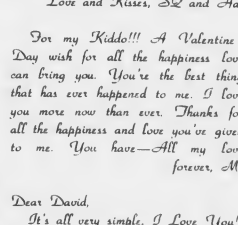 Love and Kisses, SQ and Ha
For my Kiddo!!! A Valentine
Day wish for all the happiness lov
can bring you. You're the best thin
that has ever happened to me. I lov
you more now than ever. Thanks fo
all the happiness and love you've give
to me. You have—All my lov
forever, M
Dear David,
It's all very simple. I Love You!